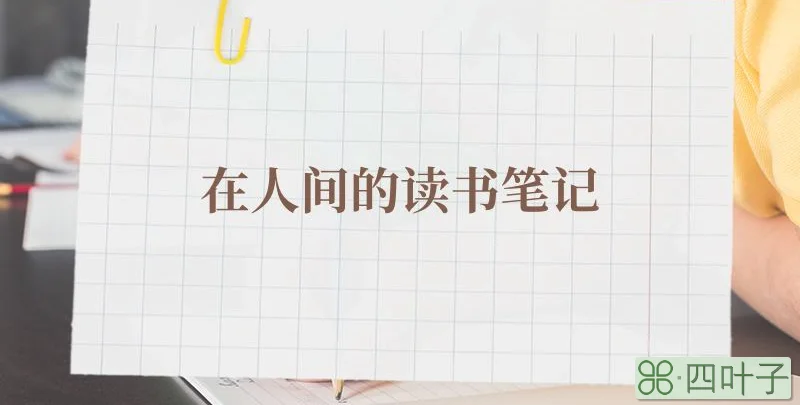 在人间的读书笔记
四叶子